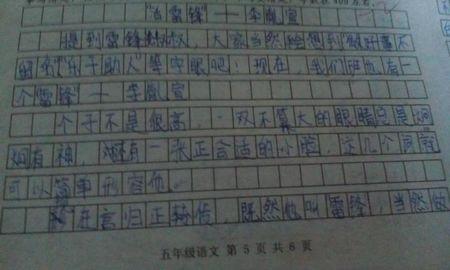 "古雷锋"——李胤宣
提到雷锋叔叔，大家当然会想到"做好事不
留名""乐于助人"等字眼吧！现在，我们班也有一
个"雷锋"——李胤宣
个子不是很高，一双不算大的眼睛总是炯
炯有神，还有一张正合适的小嘴，这几个词
可以简单形容他。
在言归正转传，既然他叫"雷锋"，当然做
五年级语文 第 5 页 共 6 页